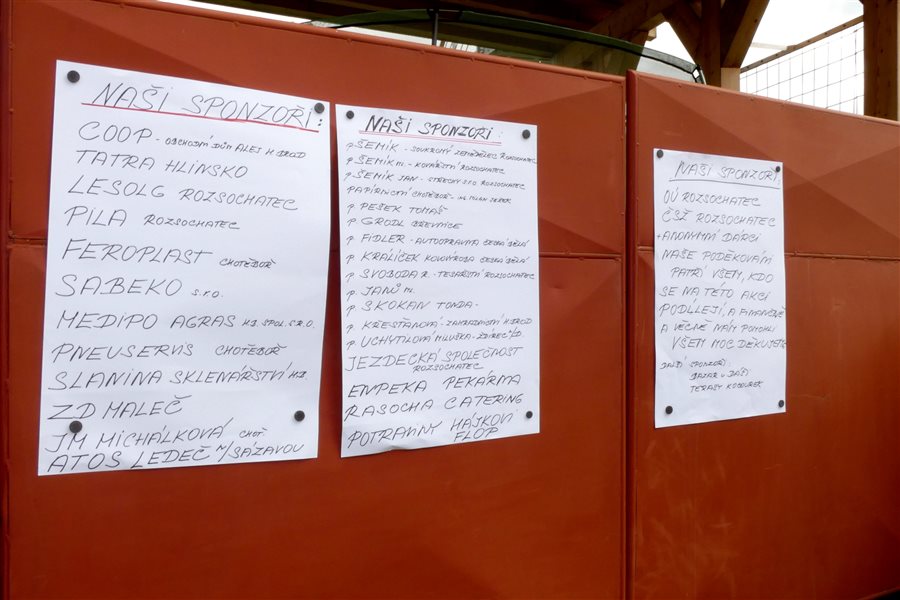 NAŠI SPONZOŘI:
COOP - OBCHODNÍ DŮM ALEJ H.BROD
TATRA HLINSKO
LESOLG ROZSOCHATEC
PILA ROZSOCHATEC
FEROPLAST CHOTĚBOŘ
SABEKO s.r.o.
MEDIPO AGRAS H.B. SPOL.S.R.O.
PNEUSERVIS CHOTĚBOŘ
SLANINA SKLENÁŘSTVÍ H.B.
ZD MALEČ
JM MICHÁLKOVÁ CHOT.
ATOS LEDEČ n/SÁZAVOU
NAŠI SPONZOŘI:
p ŠEMÍK - SOUKROMÝ ZEMĚDĚLEC ROZSOCHATEC
p. ŠEMÍK m. - KOVÁŘSTVÍ ROZSOCHATEC
p. ŠEMÍK JAN - STŘECHY S.R.O ROZSOCHATEC
PAPÍRNICTVÍ CHOTĚBOŘ - MILAN
p. PEŠEK TOMÁŠ
p. GRODL BŘEVNICE
p FIDLER - AUTOOPRAVNA ČESKÁ BĚLÁ
p. KRÁLÍČEK KOVOVÝROBA ČESKÁ BĚLÁ
p. SVOBODA R. - TESAŘSTVÍ ROZSOCHATEC
p. JANŮ m.
p. SKOKAN TONDA -
p. KŘESŤANOVÁ - ZAHRADNICTVÍ H.BROD
p. UCHYTILOVÁ MLUŠKA - ŽDÍREC n/D.
JEZDECKÁ SPOLEČNOST
ROZSOCHATEC
ENPEKA PEKÁRNA
RASOCHA CATERING
POTRAVINY HÁJKOVI
FLOP
NAŠI SPONZOŘI:
OÚ ROZSOCHATEC
ČSŽ ROZSOCHATEC
+ ANONYMNÍ DÁRCI
NAŠE PODĚKOVÁNÍ
PATŘÍ VŠEM, KDO
SE NA TÉTO AKCI
PODÍLEJÍ, A FINANČNĚ
A VĚCNĚ NÁM POMOHLI
VŠEM MOC DĚKUJEME
DALŠÍ SPONZOŘI:
BAZAR u DÁŠI
TERASY KOCOUREK